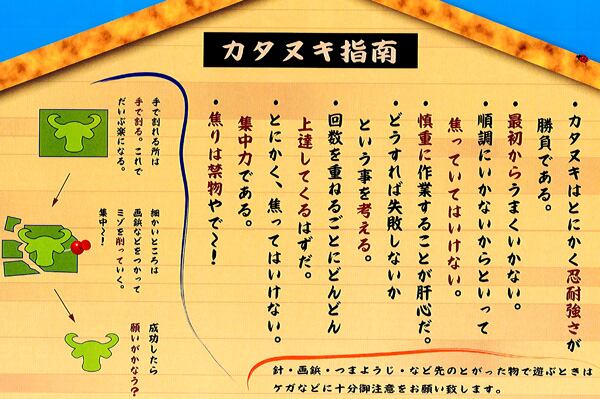 カタヌキ指南
・カタヌキはとにかく忍耐強さが
勝負である。
・最初からうまくいかない。
・順調にいかないからといって
焦っていてはいけない。
・慎重に作業することが肝心だ。
・どうすれば失敗しないか
という事を考える。
・回数を重ねるごとにどんどん
上達してくるはずだ。
・とにかく、焦ってはいけない。
集中力である。
・焦りは禁物やで〜!
手で割れる所は
手で割る。これで
だいぶ楽になる。
細かいところは
画鋲などをつかって
ミゾを削っていく。
集中〜!
成功したら
願いがかなう?
針・画鋲・つまようじ・など先のとがった物で遊ぶときは
ケガなどに十分御注意をお願い致します。